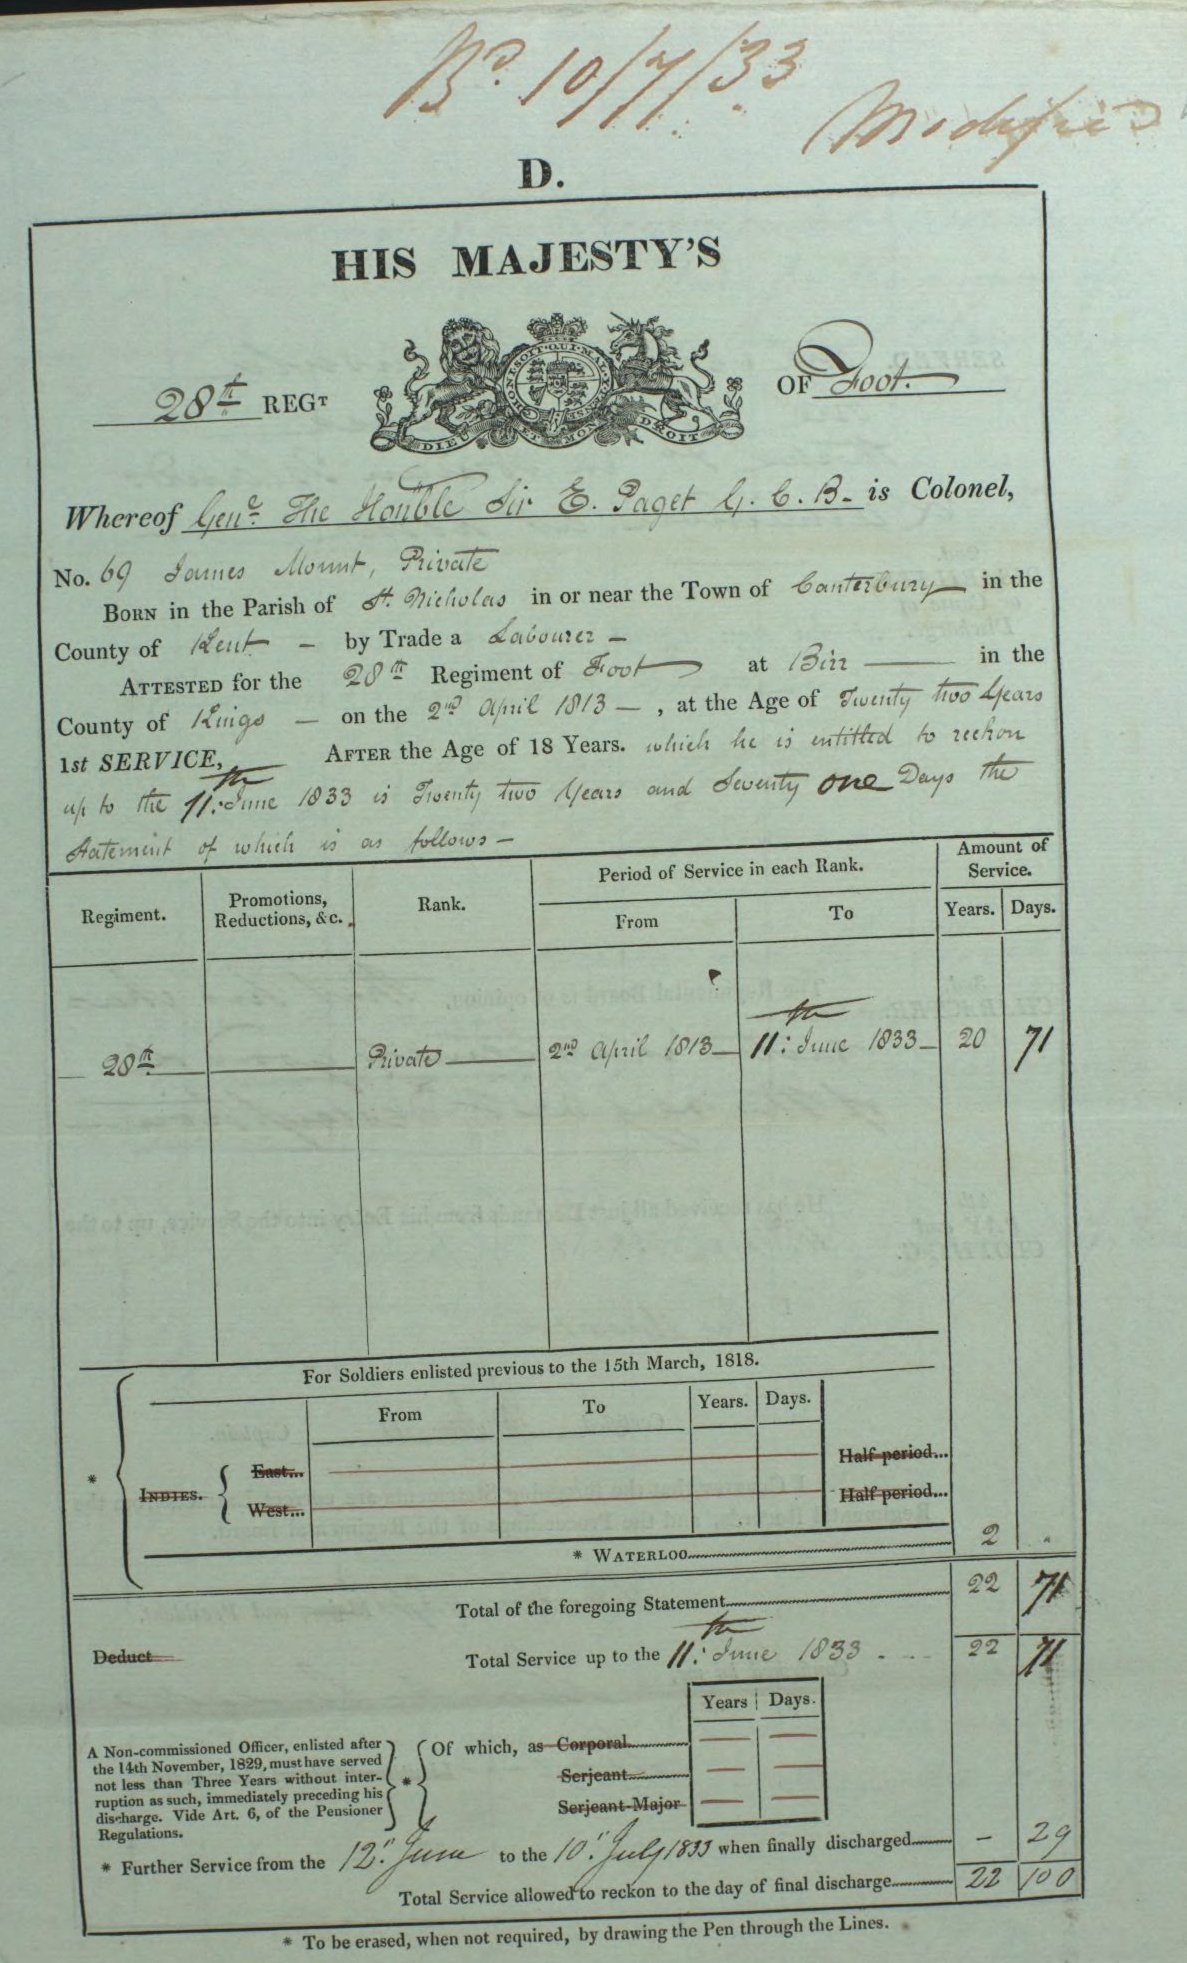 Bd. 10/7/33
Modified
D.
HIS MAJESTY'S
28th REGT OF Foot.
HONI SOIT QUI MAL Y PENSE
DIEU ET MON DROIT
Whereof Genl. The Honble Sir E. Paget G. C. B. is Colonel,
No. 69 James Mount, Private
BORN in the Parish of St. Nicholas in or near the Town of Canterbury in the
County of Kent – by Trade a Labourer –
ATTESTED for the 28th Regiment of Foot at Birr in the
County of Kings – on the 2nd April 1813 – , at the Age of Twenty two Years
1st SERVICE, AFTER the Age of 18 Years. which he is entitled to reckon
up to the 11:th June 1833 is Twenty two Years and Seventy one Days the
Statement of which is as follows –
Regiment. Promotions, Reductions, &c. Rank. Period of Service in each Rank. Amount of Service.
From To Years. Days.
28th Private 2nd April 1813 11:th June 1833 20 71
For Soldiers enlisted previous to the 15th March, 1818.
From To Years. Days.
* INDIES. East... Half period...
West... Half period...
* WATERLOO 2 .
Total of the foregoing Statement 22 71
Deduct Total Service up to the 11:th June 1833 22 71
Years Days.
A Non-commissioned Officer, enlisted after
the 14th November, 1829, must have served
not less than Three Years without inter-
ruption as such, immediately preceding his
discharge. Vide Art. 6, of the Pensioner
Regulations.
* Of which, as Corporal
Serjeant
Serjeant-Major
* Further Service from the 12" June to the 10" July 1833 when finally discharged – 29
Total Service allowed to reckon to the day of final discharge 22 100
* To be erased, when not required, by drawing the Pen through the Lines.